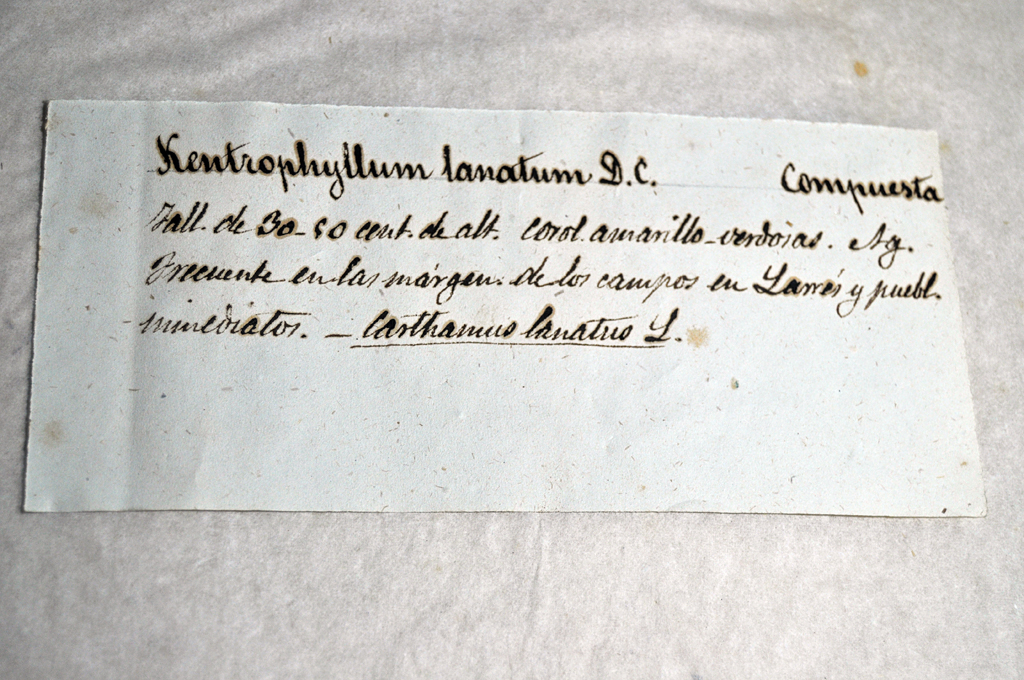 Kentrophyllum lanatum D.C. Compuesta
Tall. de 30-50 cent. de alt. corol. amarillo-verdosas. Ag.
Frecuente en las márgen. de los campos en Larrés y puebl.
inmediatos. – Carthamus lanatus L.